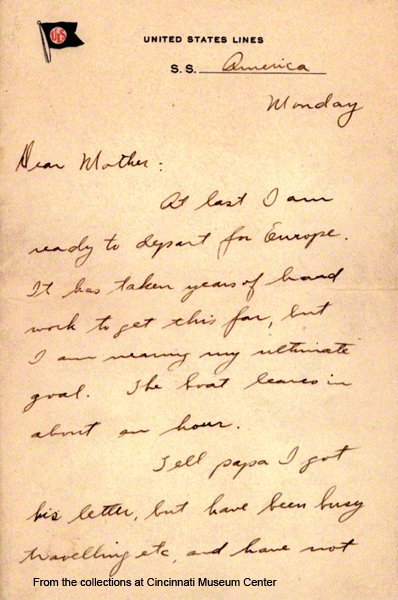 USL
UNITED STATES LINES
S. S. America
Monday
Dear Mother:
At last I am
ready to depart for Europe.
It has taken years of hard
work to get this far, but
I am nearing my ultimate
goal. The boat leaves in
about an hour.
Tell papa I got
his letter, but have been busy
travelling etc, and have not
From the collections at Cincinnati Museum Center